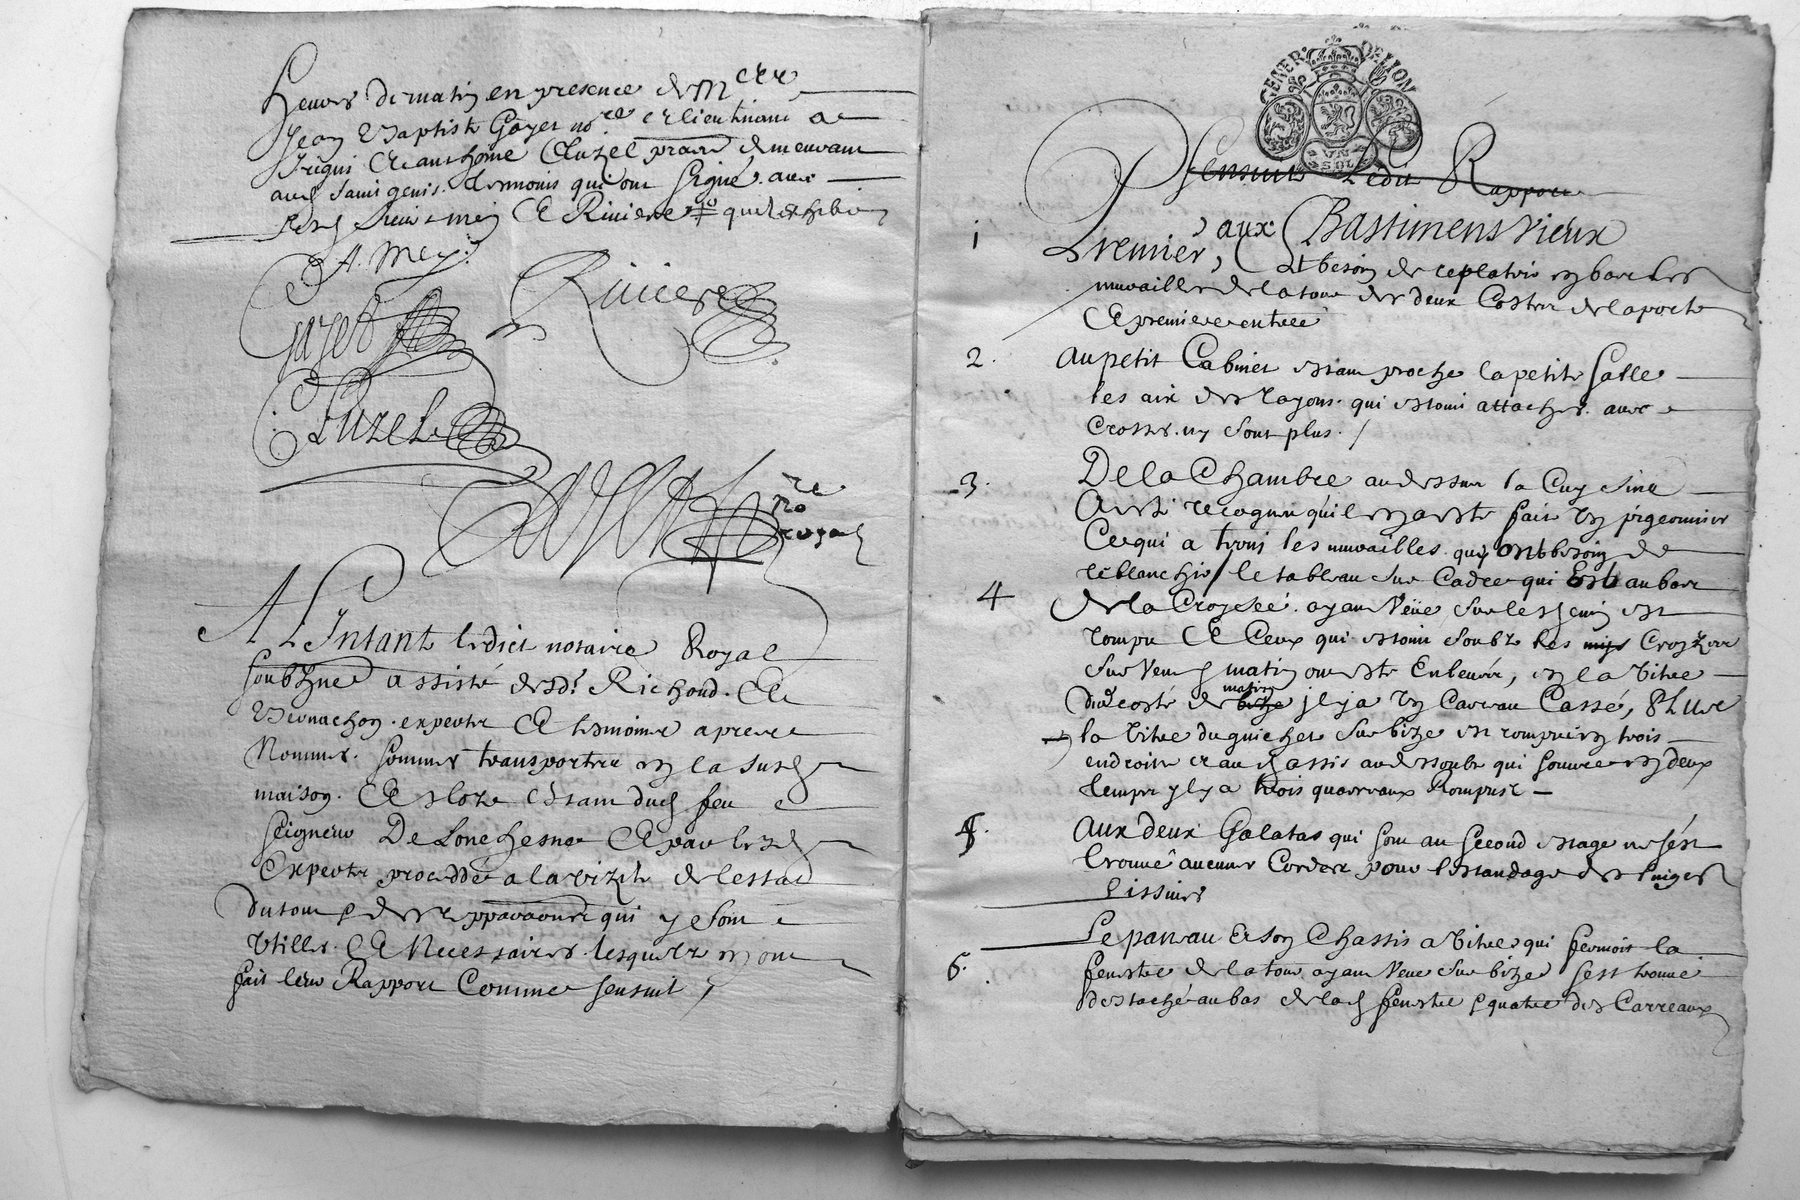 heures de matin en presence de M.re
Jean Baptiste Gayet no.re et lieutenant a
Irigni et anthoine Cluzel prat. demeurant
aud saint genis tesmoins qui ont signé avec
led. sieur mey Et Riviere
A. Mey.
Gayet
Riviere
Cluzel
no.re
royal
A L'Instant ledict notaire Royal
soubzne assisté desd. Richoud Et
expertz Et tesmoins apres
Nommes sommes transportes en la susd
maison Et cloze estant dud feu
seigneur De Lonchesne Et par lesd
Expertz proceddé a la vizite de lestat
du tout & des reppara​ons qui y sont
Utilles Et Necessaires lesquelz mont
fait leur Rapport Comme sensuit
GENER. DE LION
UN SOL
Sensuit Ledit Rapport
1 Premier, aux Bastimens Vieux
Est besoin de replatrir en bas les
murailles de la tour des deux Costez de la porte
Et premiere entree
2. Au petit Cabinet estant proche la petite salle
les aix des rayons qui estoint attachez avec
crosses ny sont plus.
3. De la Chambre au dessus la Cuysine
Avons recognu quil en a esté fait un pigeonnier
Ce qui a terni les murailles qui ont besoin de
reblanchir / le tableau sur Cadre qui Est au bas
4 de la Croysée ayant Veüe sur le chemin est
rompu Et Ceux qui estoint soubz les croysées
sur Vent matin ont esté Enlevés, en la Vitre
du costé de matin jl y a un Carreau Cassé, Plus
la Vitre du guichet sur bize est rompue en trois
endroits et au chassis au dessoubz qui souvre en deux
temps y l y a trois quarreaux Rompus
5. Aux deux Galatas qui sont au second estage ne sest
trouvé aucunes Cordes pour l'Estandage des linges
Lissives
6. Le paneau & son Chassis a Vitres qui fermoit la
fenestre de la tour ayant Veüe sur bize sest trouvé
destaché au bas de lad fenestre & quatre des Carreaux